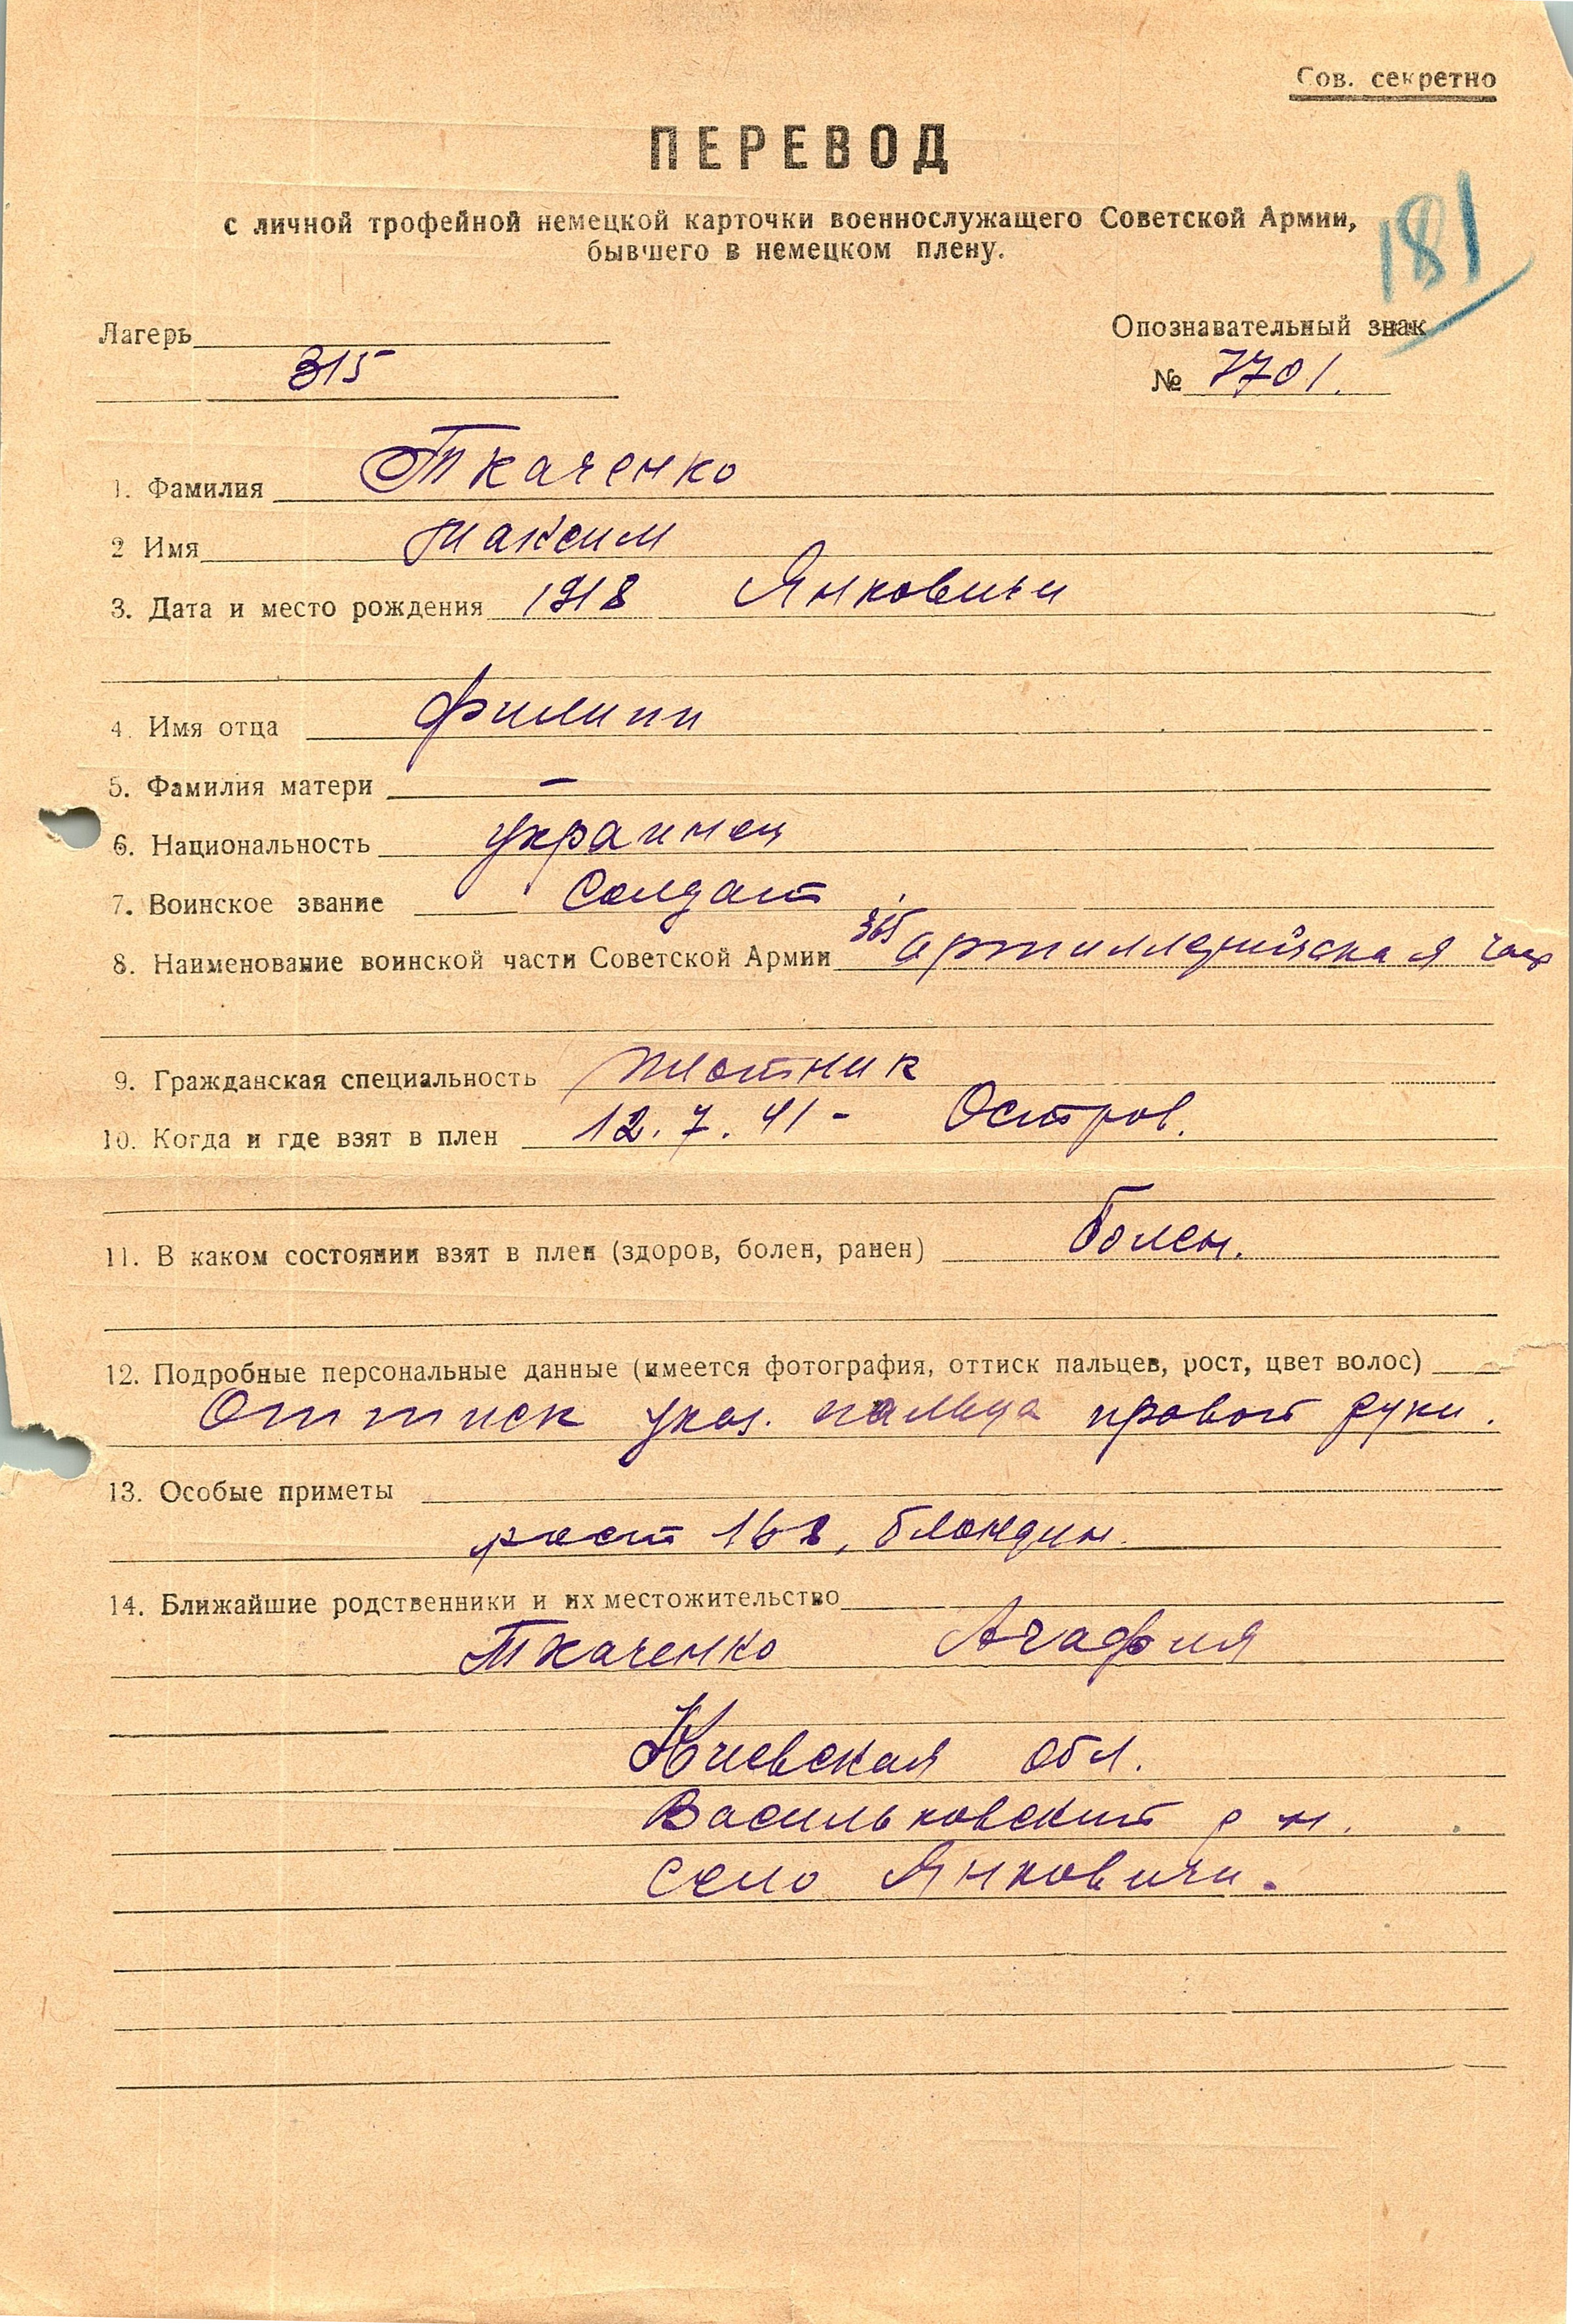 Сов. секретно
ПЕРЕВОД
с личной трофейной немецкой карточки военнослужащего Советской Армии,
бывшего в немецком плену.
181
Лагерь
315
Опознавательный знак
№ 7701.
1. Фамилия Ткаченко
2 Имя Максим
3. Дата и место рождения 1918 Янковичи
4. Имя отца Филипп
5. Фамилия матери —
6. Национальность украинец
7. Воинское звание Солдат
8. Наименование воинской части Советской Армии 365 артиллерийская
9. Гражданская специальность плотник
10. Когда и где взят в плен 12.7.41 - Остров.
11. В каком состоянии взят в плен (здоров, болен, ранен) болен.
12. Подробные персональные данные (имеется фотография, оттиск пальцев, рост, цвет волос)
Оттиск указ. пальца правой руки.
13. Особые приметы
рост 168, блондин.
14. Ближайшие родственники и их местожительство
Ткаченко Агафия
Киевская обл.
Васильковский р-н.
село Янковичи.